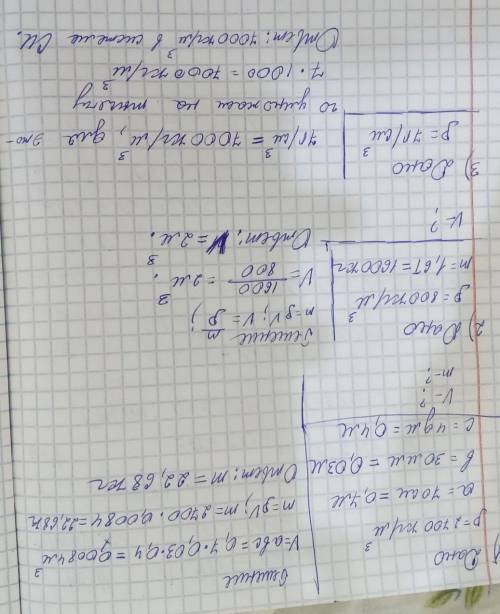 1) Дано
ρ=2700 кг/м³
a=70 см = 0,7м
b=30мм = 0,03м
c=4дм=0,4м
V-?
m-?
Решение
V=abc=0,7·0,03·0,4=0,0084м³
m=ρV; m=2700·0,0084=22,68кг
Ответ: m=22,68кг
2) Дано
ρ=800кг/м³
m=1,6т=1600кг
V-?
Решение
m=ρV; V=m/ρ;
V=1600/800=2м³.
Ответ: V=2м³.
3) Дано
ρ=7г/см³
7г/см³=7000кг/м³, для это-
го умножаем на тысячу
7·1000=7000кг/м³
Ответ: 7000кг/м³ в системе СИ.